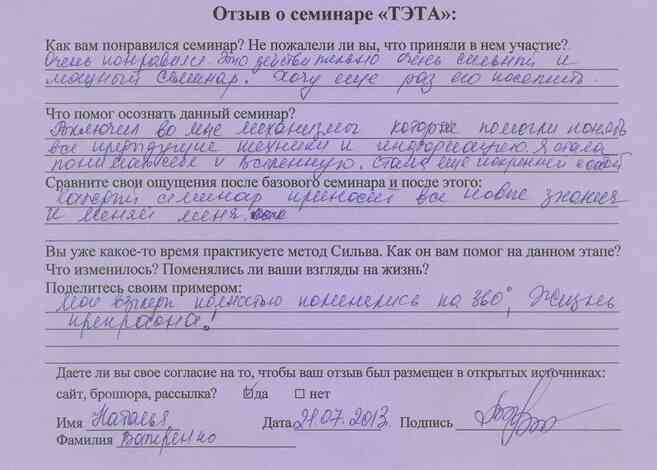 Отзыв о семинаре «ТЭТА»:
Как вам понравился семинар? Не пожалели ли вы, что приняли в нем участие?
Очень понравился. Это действительно очень сильный и
мощный семинар. Хочу еще раз его посетить.
Что помог осознать данный семинар?
Включил во мне механизмы которые помогли понять
все предыдущие техники и информацию. Я стала
понимать себе и вселенную. Стала еще искренней с собой
Сравните свои ощущения после базового семинара и после этого:
семинар приносил все новые знания
и менял меня.
Вы уже какое-то время практикуете метод Сильва. Как он вам помог на данном этапе?
Что изменилось? Поменялись ли ваши взгляды на жизнь?
Поделитесь своим примером:
Мои взгляды полностью поменялись на 360°, Жизнь
прекрасна!
Даете ли вы свое согласие на то, чтобы ваш отзыв был размещен в открытых источниках:
сайт, брошюра, рассылка? да нет
Имя Наталья Дата 21.07.2013 Подпись
Фамилия